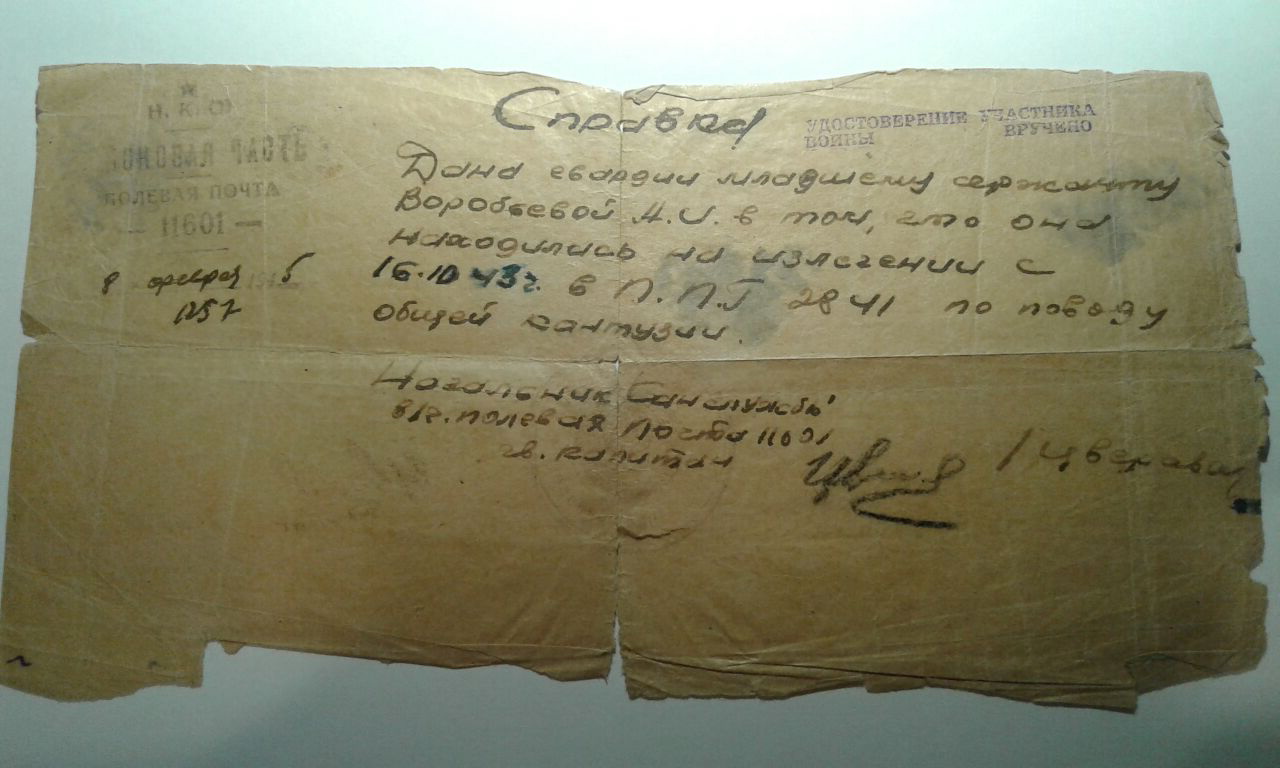 Н. К. О.
ПОЛЕВАЯ ПОЧТА
— 11601 —
8 февраля 5
1257
Справка
УДОСТОВЕРЕНИЕ УЧАСТНИКА
ВОЙНЫ ВРУЧЕНО
Дана гвардии младшему сержанту
Воробьевой А.И. в том, что она
находилась на излечении с
16.10 43г. в П.П.Г 2841 по поводу
общей кантузии.
Начальник Санслужбы
в/ч. полевая почта 11601
гв. капитан